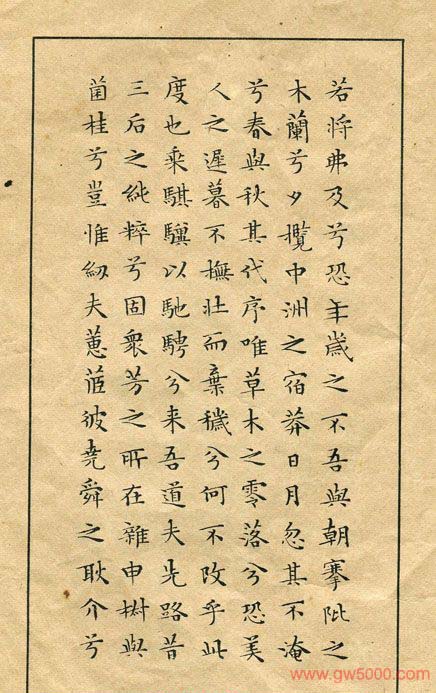 若將弗及兮恐年歲之不吾與朝搴阰之
木蘭兮夕攬中洲之宿莽日月忽其不淹
兮春與秋其代序唯草木之零落兮恐美
人之遲暮不撫壯而棄穢兮何不改乎此
度也乘騏驥以馳騁兮来吾道夫先路昔
三后之純粹兮固衆芳之所在雜申椒與
菌桂兮豈惟紉夫蕙茝彼堯舜之耿介兮
www.gw5000.com